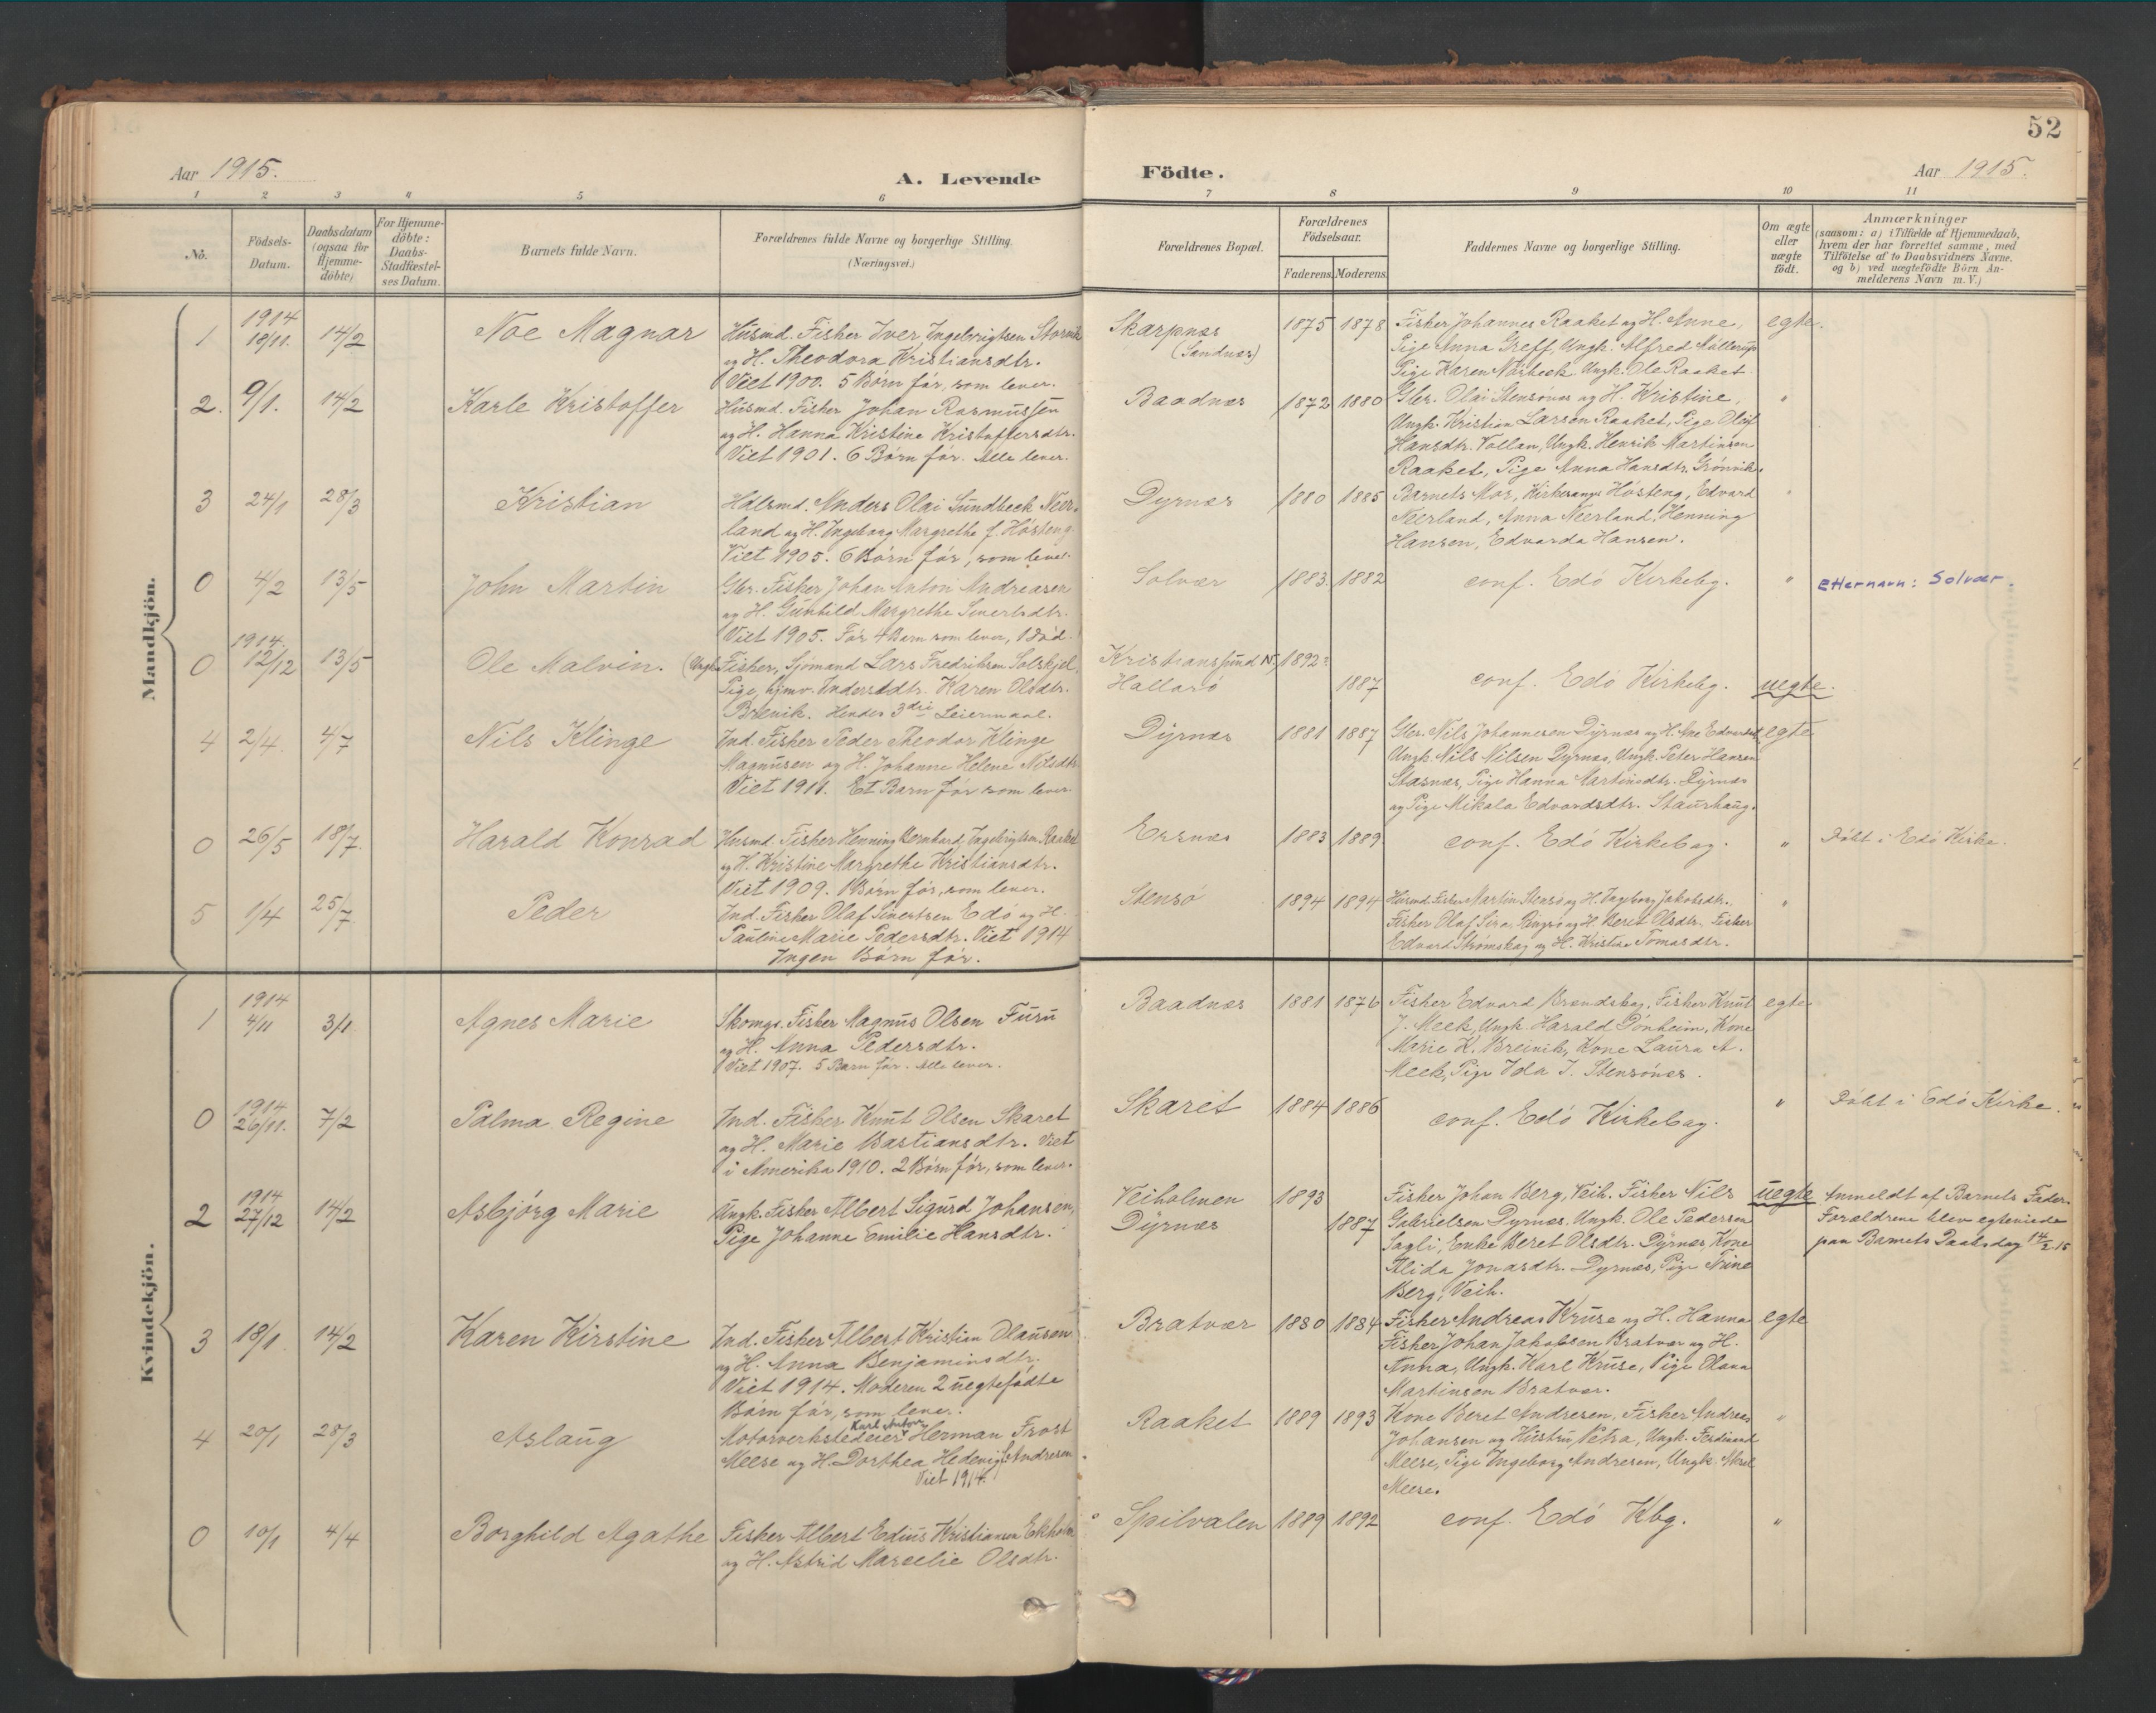 52
Aar 1915.
A. Levende Födte.
Aar 1915.
1 2 3 4 5 6 7 8 9 10 11
No.
Födsels-
Datum.
Daabsdatum
(ogsaa for
Hjemme-
döbte)
For Hjemme-
döbte:
Daabs-
Stadfæstel-
ses Datum.
Barnets fulde Navn.
Forældrenes fulde Navne og borgerlige Stilling.
(Næringsvei.)
Forældrenes Bopæl.
Forældrenes
Födselsaar.
Faderens. Moderens.
Faddernes Navne og borgerlige Stilling.
Om ægte
eller
uægte
födt.
Anmærkninger
(saasom: a) i Tilfælde af Hjemmedaab,
hvem der har forrettet samme, med
Tilföielse af to Daabsvidners Navne.
og b) ved uægtefödte Börn An-
melderens Navn m. V.)
Mandkjön.
1
1914
18/11.
14/2
Noe Magnar
Husmd. Fisker Iver Ingebrigtsen Storvik
og H. Theodora Kristiansdtr.
Viet 1900. 5 Börn för, som lever.
Skarpnes
(Sandnes)
1875 1878
Fisker Johannes Raaket og H. Anne,
Pige Anna Greff, Ungk. Alfred Möllerup
Pige Karen Norbeck, Ungk. Ole Raaket
egte.
2. 9/1. 14/2
Karle Kristoffer
Husmd. Fisker Johan Rasmussen
og H. Hanna Kristine Kristoffersdtr.
Viet 1901. 6 Börn för. Alle lever.
Baadnes
1872 1880
Gbr. Olai Stensönes og H. Kristine,
Ungk. Kristian Larsen Raaket, Pige Olöf
Hansdtr. Vollan, Ungk. Henrik Martinsen
Raaket, Pige Anna Hansdtr. Grönvik.
"
3 24/1 28/3
Kristian
Hdlsmd. Anders Olai Sundbeck Neer-
land og H. Ingeborg Margrethe f. Hösteng
Viet 1905. 6 Börn för, som lever.
Dyrnes
1880 1885
Barnets Mor, Kirkesanger Hösteng, Edvard
Neerland, Anna Neerland, Henning
Hansen, Edvarda Hansen.
"
0 4/2 13/5
John Martin
Gbr. Fisker Johan Anton Andreasen
og H. Gunhild Margrethe Sivertsdtr.
Viet 1905. För 4 Barn som lever, 1 död.
Solvær
1883. 1882
conf. Edö Kirkebg.
"
Etternavn: Solvær.
0
1914.
12/12
13/5
Ole Malvin.
(Ungk. Fisker, Sjömand Lars Fredriksen Solskjel,
Pige, hjmv. Indersedtr. Karen Olsdtr.
Brevik. Hendes 3die Leiermaal.
Kristianssund N, 1892
Hallarö 1887
conf. Edö Kirkebg.
uegte.
4 2/4. 4/7
Nils Klinge
Ind. Fisker Peder Theodor Klinge
Magnusen og H. Johanne Helene Nilsdtr.
Viet 1911. Et Barn för som lever.
Dyrnes
1881 1887
Gbr. Nils Johannesen Dyrnes og H. Ane Edvardsdtr.
Ungk. Nils Nilsen Dyrnes, Ungk. Peter Hansen
Stasnes, Pige Hanna Martinsdtr. Dyrnes
og Pige Mikala Edvardsdtr. Staurhaug.
egte
0 26/5 18/7.
Harald Konrad
Husmd. Fisker Henning Bernhard Ingebrigtsen Raaket
og H. Kristine Margrethe Kristiansdtr.
Viet 1909. 1 Börn för, som lever.
Ersnes
1883 1889
conf. Edö Kirkebog.
"
Döbt i Edö Kirke.
5 1/4 25/7.
Peder
Ind. Fisker Olaf Sivertsen Edö og H.
Pauline Marie Pedersdtr. Viet 1914
Ingen Börn för.
Stensö
1894 1894
Husmd. Fisker Martin Stensö og H. Ingeborg Jakobsdtr.
Fisker Olaf Ringsö og H. Beret Olsdtr. Fisker
Edvard Strömskag og H. Kristine Tomasdtr.
"
Kvindekjön.
1
1914
4/11
3/1
Agnes Marie
Skomgr. Fisker Magnus Olsen Furu
og H. Anna Pedersdtr.
Viet 1907. 5 Barn för. Alle lever.
Baadnes
1881 1876
Fisker Edvard Brandskag, Fisker Knut
J. Meek, Ungk. Harald Dönheim, Kone
Marie K. Breivik, Kone Laura A.
Meek, Pige Ida J. Stensönes.
egte
0
1914
26/11.
7/2
Palma Regine
Ind. Fisker Knut Olsen Skaret
og H. Marie Bastiansdtr. Viet
i Amerika 1910. 2 Börn för, som lever.
Skaret
1884 1886
conf. Edö Kirkebog.
"
Döbt i Edö Kirke.
2
1914
27/12
14/2
Asbjörg Marie
Ungk. Fisker Albert Sigurd Johansen,
Pige Johanne Emilie Hansdtr.
Veiholmen 1893
Dyrnes 1887
Fisker Johan Berg, Veih. Fisker Nils
Gabrielsen Dyrnes, Ungk. Ole Pedersen
Sagli, Enke Beret Olsdtr. Dyrnes, Kone
Alida Jonasdtr. Dyrnes, Pige Trine
Berg, Veih.
uegte
Anmeldt af Barnets Fader.
Forældrene blev egteviede
paa Barnets Daabsdag 14/2 15
3 18/1 14/2
Karen Kirstine
Ind. Fisker Albert Kristian Olausen
og H. Anna Benjaminsdtr.
Viet 1914. Moderen 2 uegtefödte
Börn för, som lever.
Bratvær
1880 1884
Fisker Andreas Kruse og H. Hanna
Fisker Johan Jakobsen Bratvær og H.
Anna, Ungk. Karl Kruse, Pige Olava
Martinsen Bratvær.
egte
4 20/1 28/3
Aslaug
Karl Anton
Motorverkstedeier Herman Frost
Meese og H. Dorthea Hedevig f. Andresen.
Viet 1914.
Raaket
1889 1893
Kone Beret Andresen, Fisker Andreas
Johansen og Hustru Petra, Ungk. Ferdinand
Meese, Pige Ingeborg Andresen, Ungk. Aksel
Meese.
"
0 10/1 4/4
Borghild Agathe
Fisker Albert Edius Kristiansen Ekholm
og H. Astrid Marcelie Olsdtr.
Spilvalen
1889 1892
conf. Edö Kbg.
"